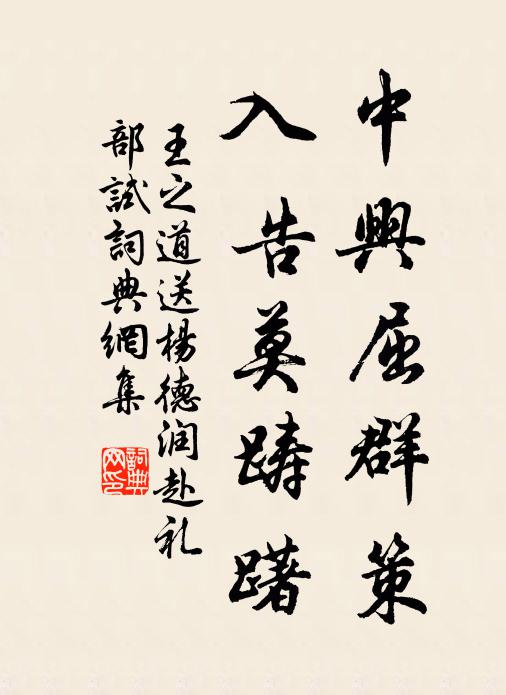 中興屈群策
入告莫踌躇
王之道送楊德润赴礼
部試詞典網集
詞典
网印